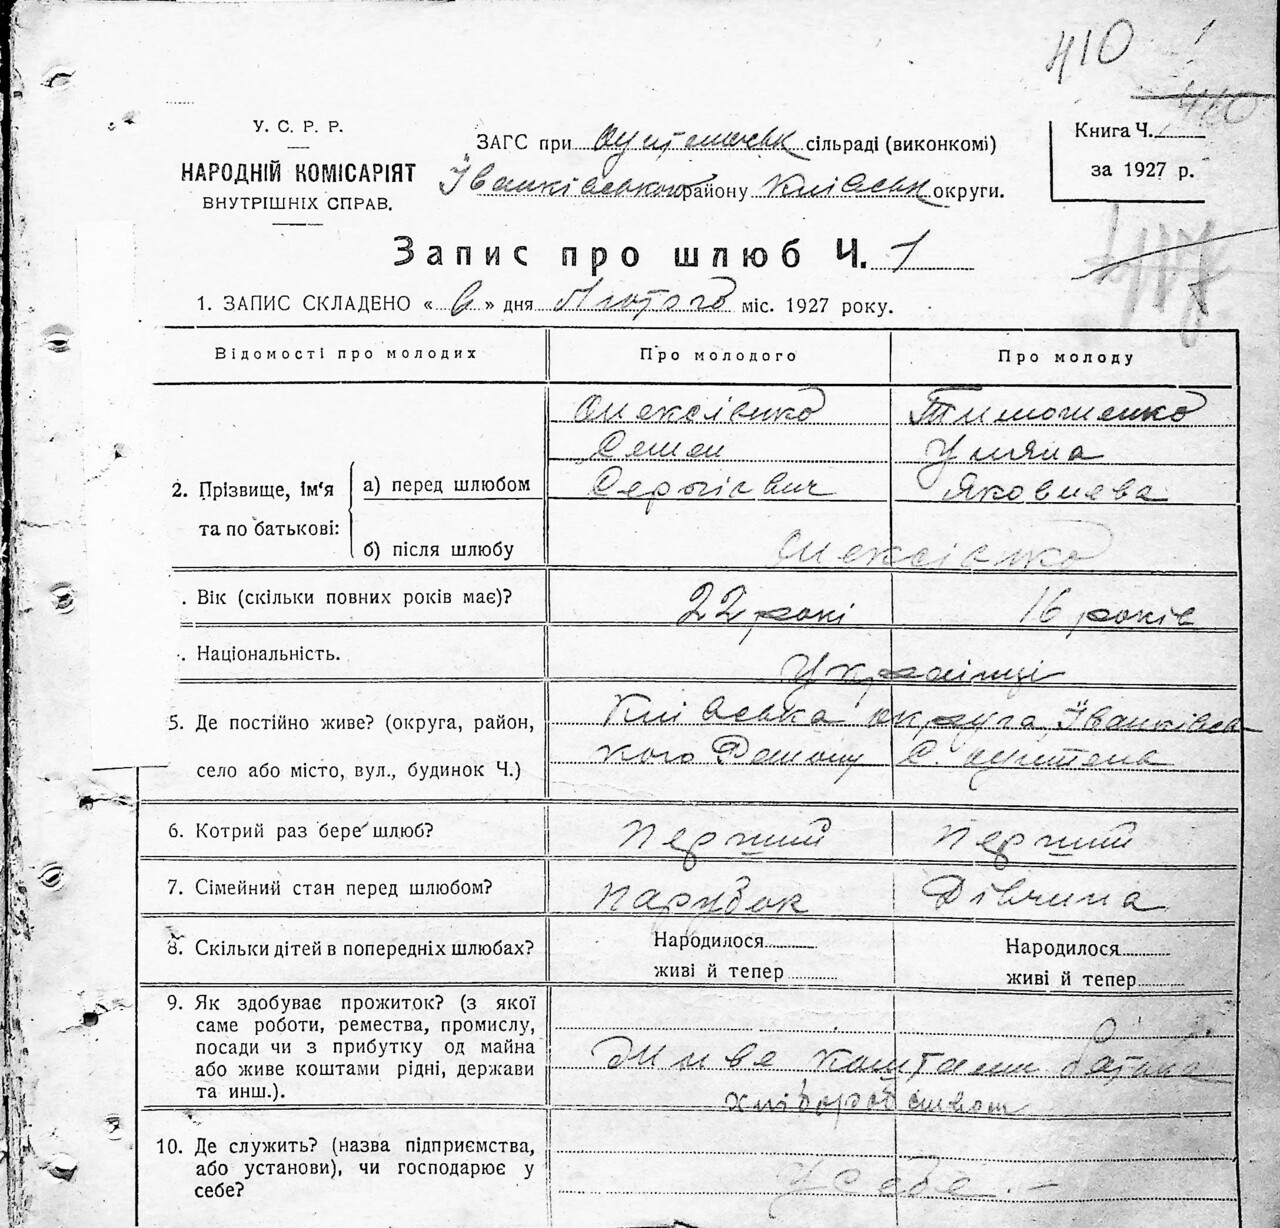 410
1
410
У. С. Р. Р.
НАРОДНІЙ КОМІСАРІЯТ
ВНУТРІШНІХ СПРАВ.
ЗАГС при сільраді (виконкомі)
Іванківського району Київськ округи.
Книга Ч.
за 1927 р.
Запис про шлюб Ч. 1
1. ЗАПИС СКЛАДЕНО « 6 » дня Лютого міс. 1927 року.
Відомості про молодих Про молодого Про молоду
Олексієнко Тимошенко
Семен Уляна
2. Прізвище, ім'я а) перед шлюбом Сергієвич Яковлева
та по батькові:
б) після шлюбу Олексієнко
. Вік (скільки повних років має)? 22 рокі 16 років
. Національність. Українці
5. Де постійно живе? (округа, район, Київська округа, Іванківсь
село або місто, вул., будинок Ч.) кого Району С.
6. Котрий раз бере шлюб? Перший Перший
7. Сімейний стан перед шлюбом? Парубок Дівчина
8. Скільки дітей в попередніх шлюбах? Народилося Народилося
живі й тепер живі й тепер
9. Як здобуває прожиток? (з якої
саме роботи, ремества, промислу,
посади чи з прибутку од майна Живе коштами батька
або живе коштами рідні, держави хліборобством
та инш.).
10. Де служить? (назва підприємства,
або установи), чи господарює у У себе. –
себе?